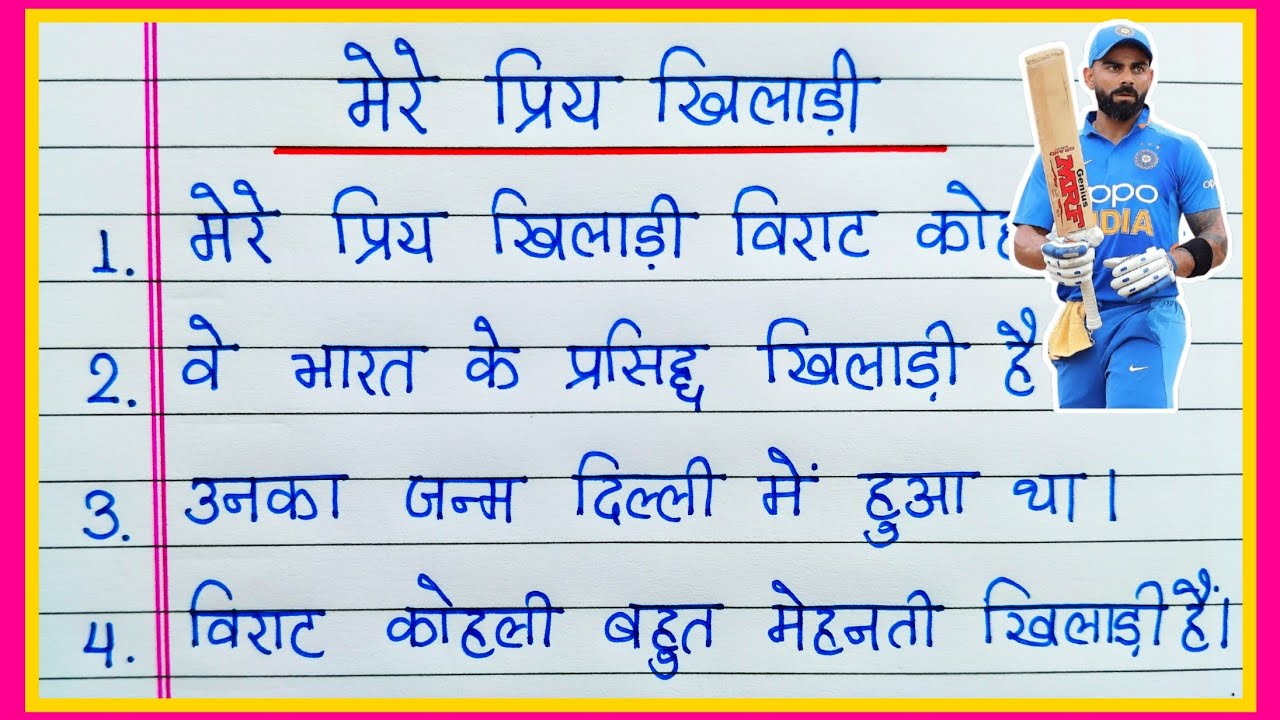 मेरे प्रिय खिलाड़ी
1. मेरे प्रिय खिलाड़ी विराट
2. वे भारत के प्रसिद्द खिलाड़ी है
3. उनका जन्म दिल्ली में हुआ था।
4. विराट कोहली बहुत मेहनती खिलाड़ी हैं।
oppo
INDIA
MRF
Genius
GRAND